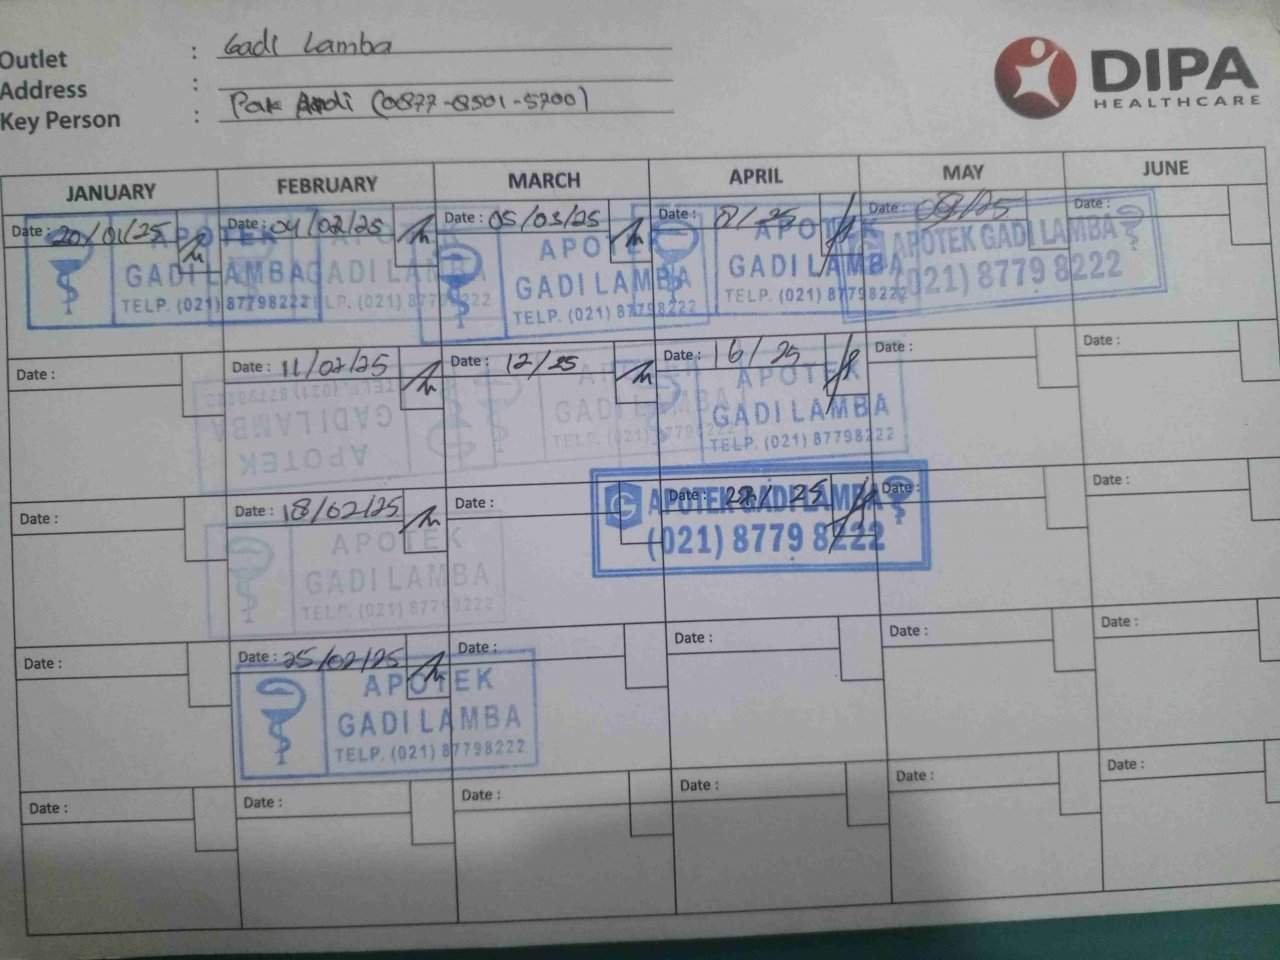 Outlet : Gadi Lamba
Address :
Key Person : Pak Andi (0877-8501-5700)
DIPA
HEALTHCARE
JANUARY FEBRUARY MARCH APRIL MAY JUNE
Date : 20/01/25 Date : 04/02/25 Date : 05/03/25 Date : 8/25 Date : 09/25 Date :
APOTEK
GADI LAMBA
TELP. (021) 87798222
APOTEK
GADI LAMBA
TELP. (021) 87798222
APOTEK
GADI LAMBA
TELP. (021) 87798222
APOTEK GADI LAMBA
(021) 8779 8222
Date : Date : 11/02/25 Date : 12/25 Date : 16/25 Date : Date :
TELP. (021) 87798222
GADI LAMBA
APOTEK
GADI LAMBA
APOTEK
GADI LAMBA
TELP. (021) 87798222
Date : Date : 18/02/25 Date : Date : 28/25 Date : Date :
APOTEK
GADI LAMBA
TELP. (021) 87798222
G APOTEK GADI LAMBA
(021) 8779 8222
Date : Date : 25/02/25 Date : Date : Date : Date :
APOTEK
GADI LAMBA
TELP. (021) 87798222
Date : Date : Date : Date : Date : Date :